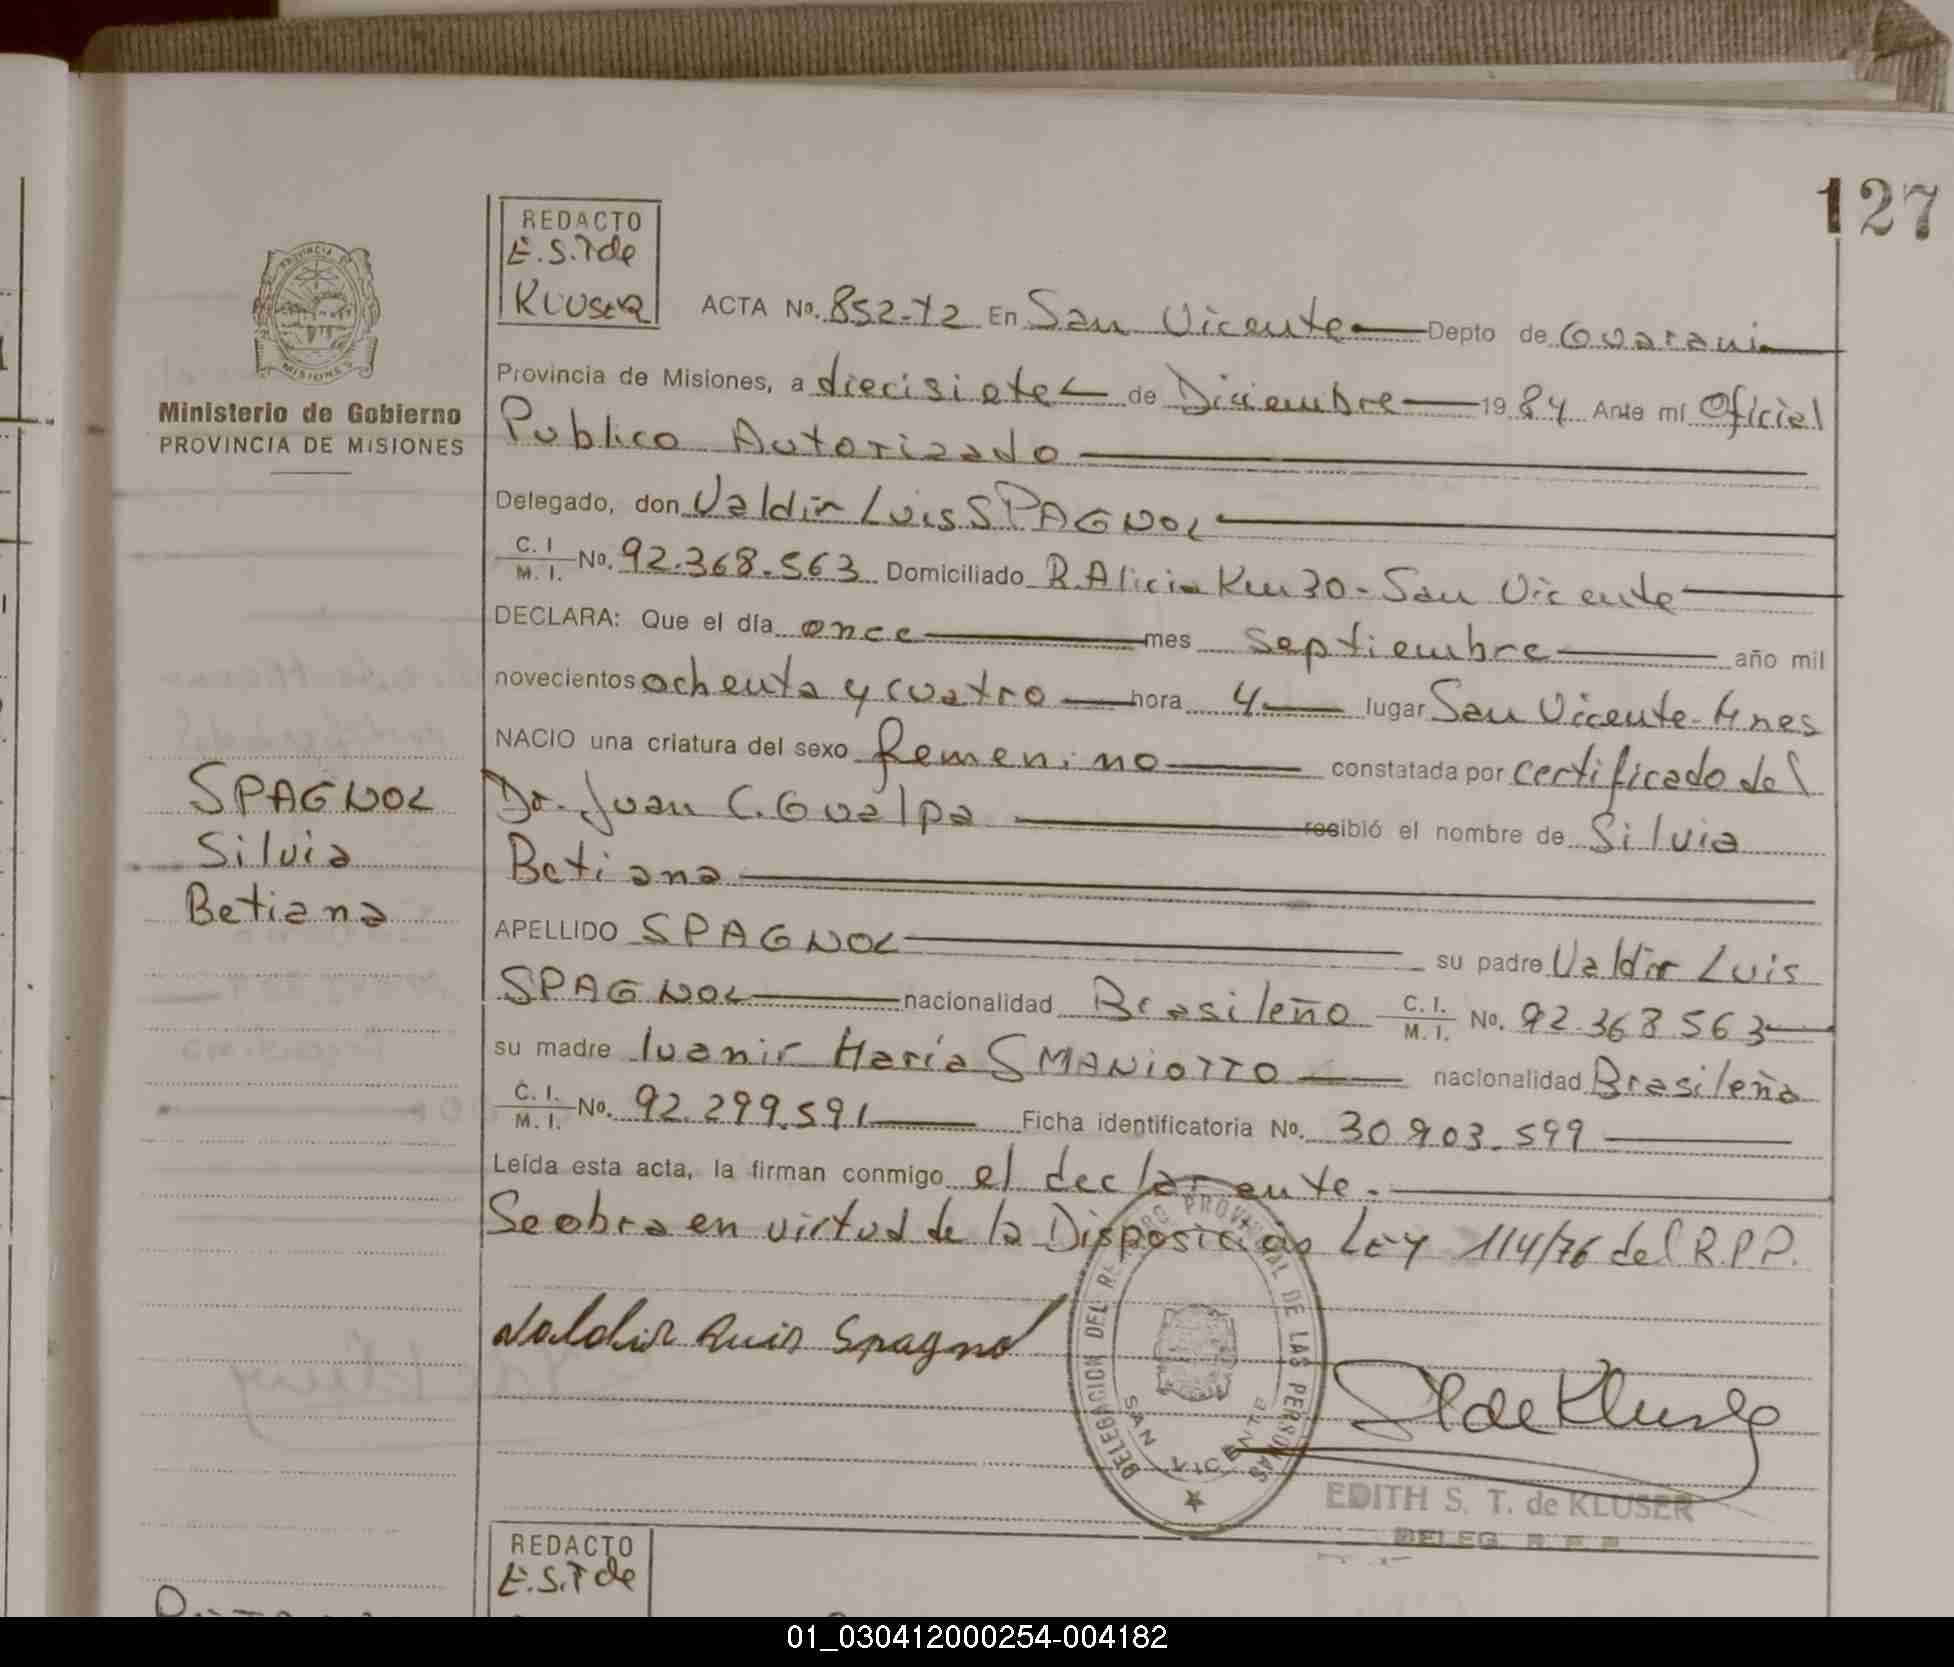 127
REDACTO
E.S.T de
KLUSER
ACTA No. 852-T2 En San Vicente Depto de Guarani
Ministerio de Gobierno
PROVINCIA DE MISIONES
Provincia de Misiones, a diecisiete de Diciembre 1984 Ante mí Oficial
Publico Autorizado
Delegado, don Valdir Luis SPAGNOL
C. I. / M. I. No. 92.368.563 Domiciliado R. Alicia Km 30 - San Vicente
DECLARA: Que el día once mes septiembre año mil
novecientos ochenta y cuatro hora 4 lugar San Vicente - Mnes
NACIO una criatura del sexo femenino constatada por certificado del
SPAGNOL
Silvia
Betiana
Dr. Juan C. Gualpa recibió el nombre de Silvia
Betiana
APELLIDO SPAGNOL su padre Valdir Luis
SPAGNOL nacionalidad Brasileño C. I. / M. I. No. 92.368563
su madre Ivanir María SMANIOTTO nacionalidad Brasileña
C. I. / M. I. No. 92.299.591 Ficha identificatoria No. 30.903.599
Leída esta acta, la firman conmigo el declarente.
Se obra en virtud de la Disposicion LEY 114/76 del R.P.P.
Valdir Luis Spagnol
DELEGACION DEL REGISTRO PROVINCIAL DE LAS PERSONAS
SAN VICENTE
ST de Kluser
EDITH S. T. de KLUSER
DELEG. R. P. P.
REDACTO
E.S.T de
01_030412000254-004182